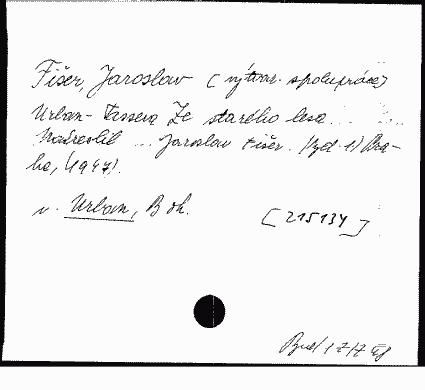 Fišer, Jaroslav (výtvar. spolupráce)
Urban-Tassera Ze starého lesa ...
Nakreslil ... Jaroslav Fišer. (Vyd. 1) Pra-
ha, (1947).
v. Urban, Boh.
[215134]